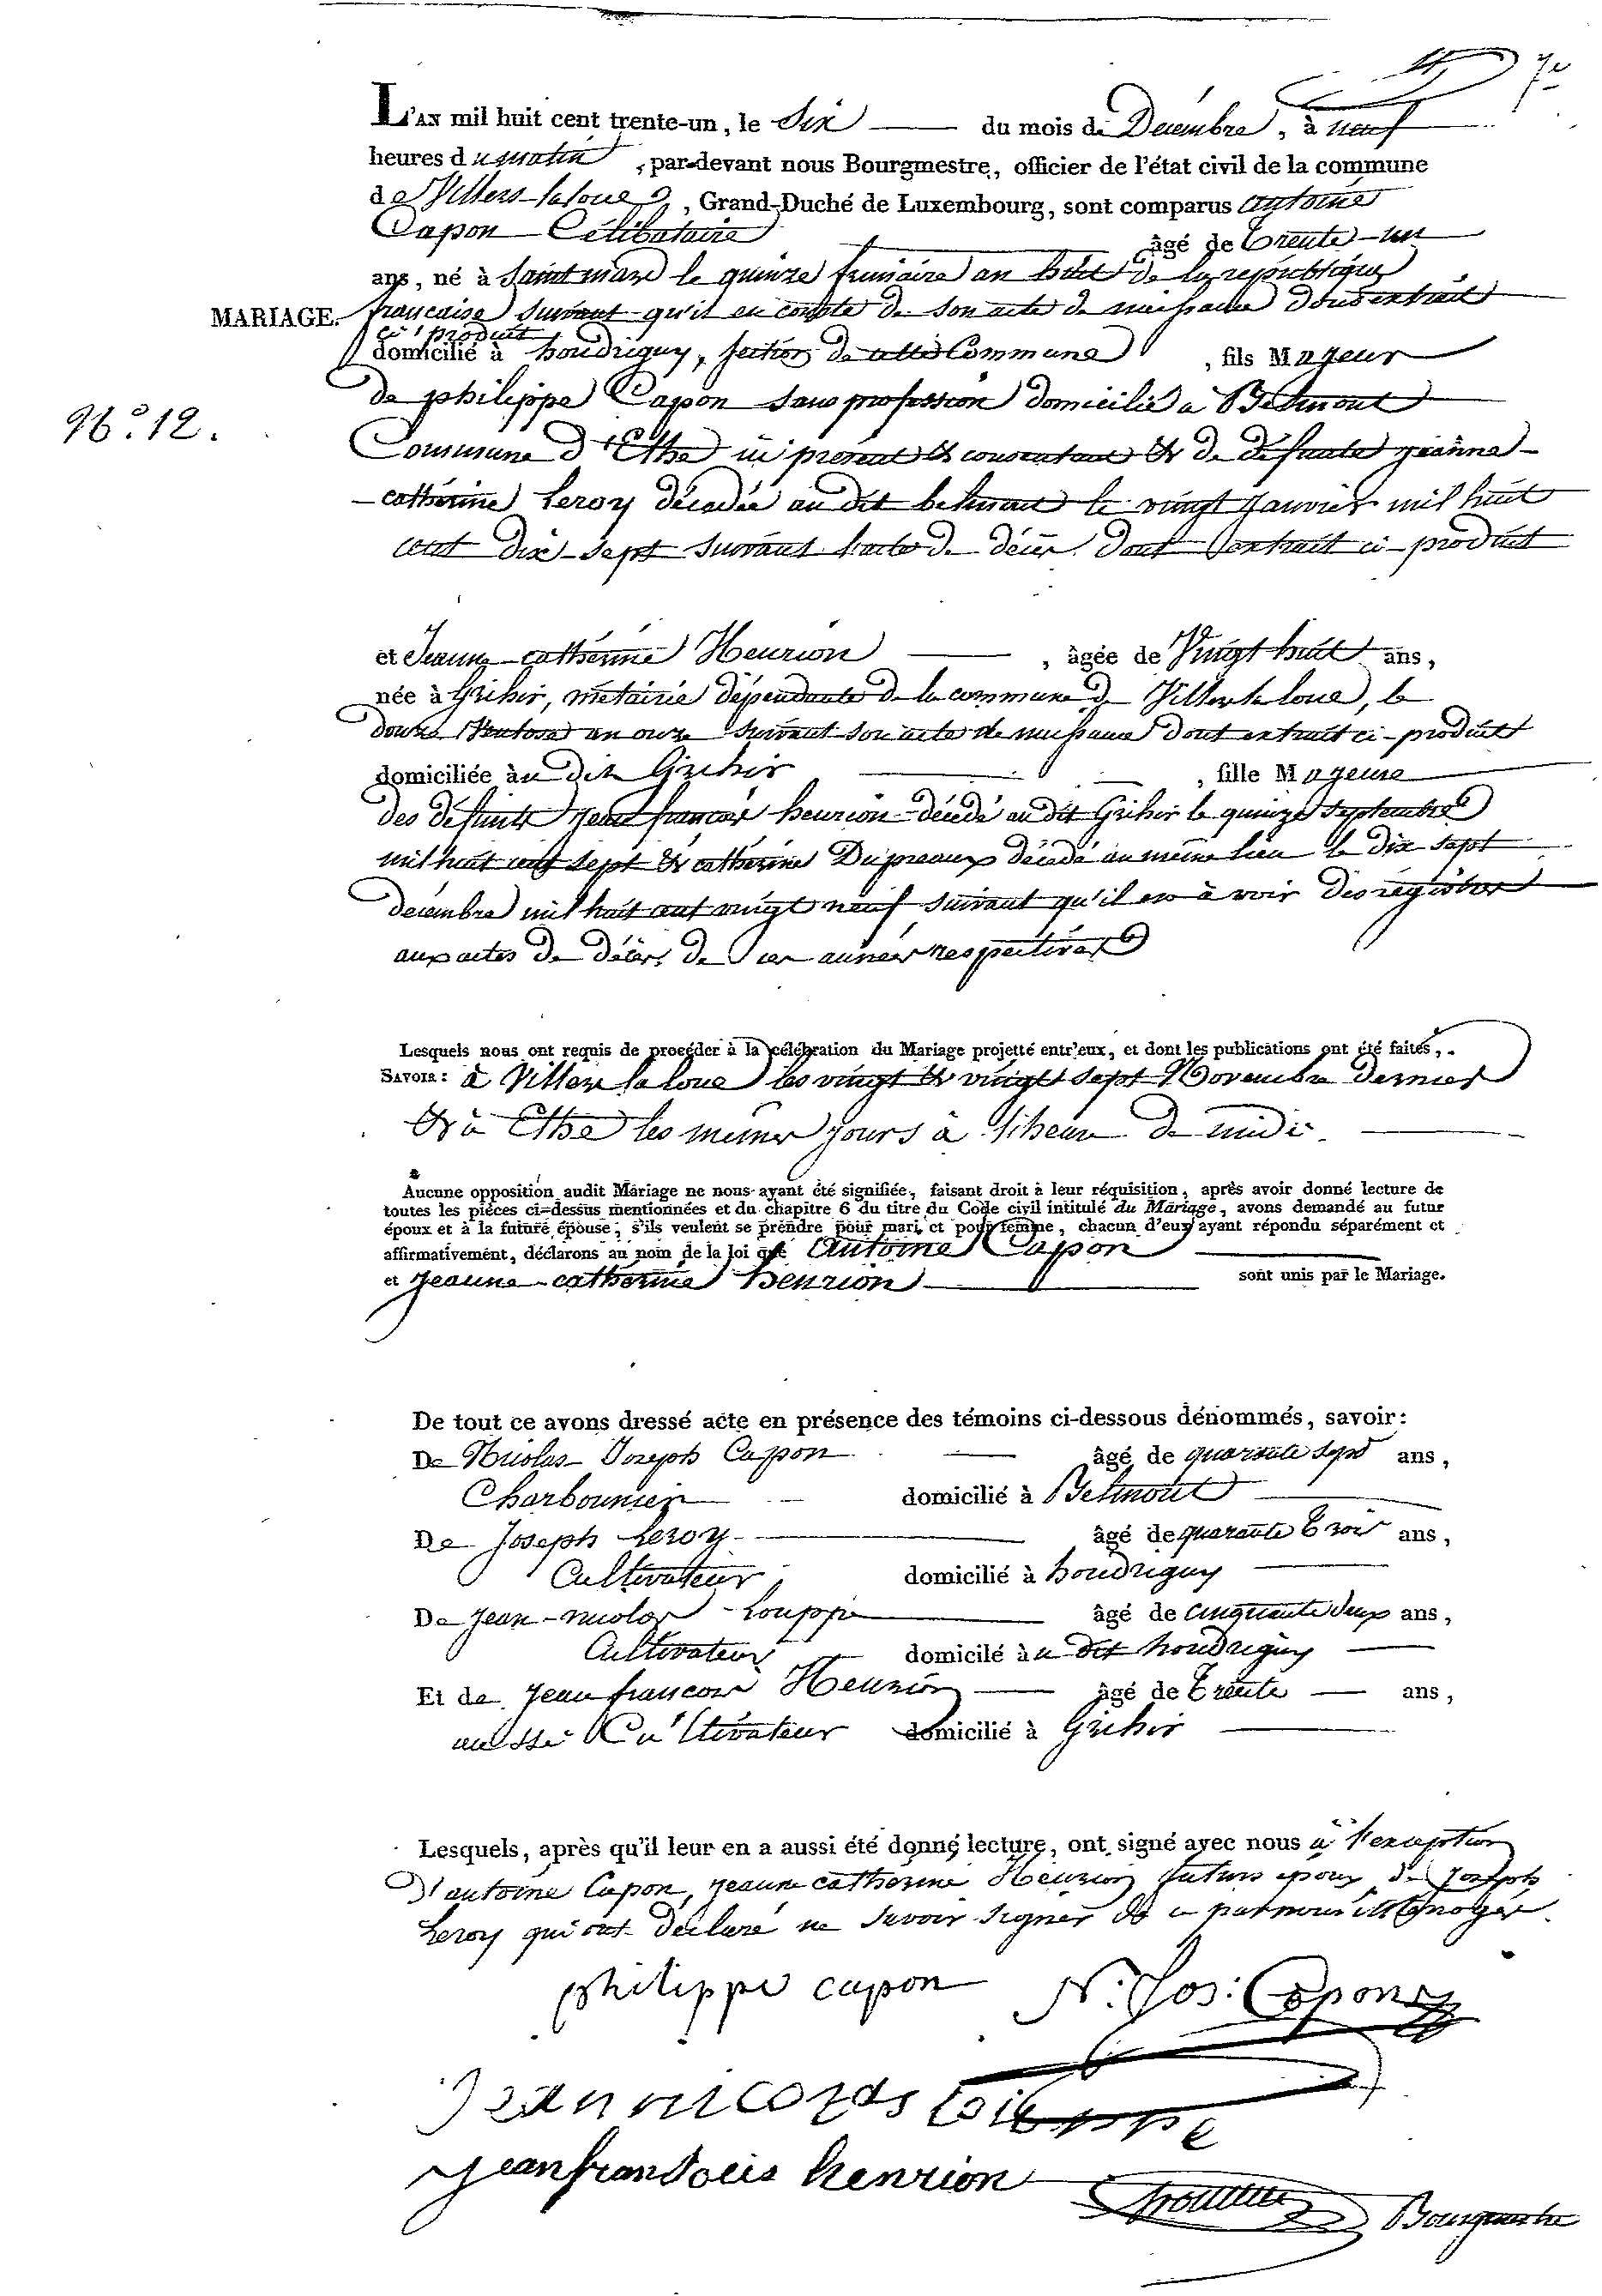 7e
L'AN mil huit cent trente-un, le Six du mois de Decembre, à neuf
heures du matin, par-devant nous Bourgmestre, officier de l'état civil de la commune
de Villers-la loue, Grand-Duché de Luxembourg, sont comparus antoine
Capon Célibataire âgé de trente-un
ans, né à Saint mard le quinze frimaire an huit de la république
MARIAGE. française suivant qu'il en conste de son acte de naissance dont extrait
ci produit
domicilié à houdrigny, section de cette Commune, fils Majeur
de philippe Capon sans profession domicilié à Belmont
N.° 12.
Commune d'Ethe ici présent et consentant et de défunte jeanne-
-catherine Leroy décédée au dit belmont le vingt janvier mil huit
cent dix-sept suivant l'acte de décès dont l'extrait ci-produit
et Jeanne-catherine Henrion, âgée de Vingt huit ans,
née à Grihir, métairie dépendante de la commune de Villers la loue, le
douze Ventose an onze suivant son acte de naissance dont extrait ci-produit
domiciliée àu dit Grihir, fille Majeure
des défunts jean françois henrion décédé au dit Grihir le quinze septembre
mil huit cent sept et catherine Dupreaux décédé au même lieu le dix sept
décembre mil huit cent vingt neuf suivant qu'il en à voir des registres
aux actes de décès de ces années respectives
Lesquels nous ont requis de procéder à la célébration du Mariage projetté entr'eux, et dont les publications ont été faites,
SAVOIR: à Villers la loue les vingt et vingt sept Novembre dernier
et à Ethe les mêmes jours à l'heure de midi
Aucune opposition audit Mariage ne nous ayant été signifiée, faisant droit à leur réquisition, après avoir donné lecture de
toutes les pièces ci-dessus mentionnées et du chapitre 6 du titre du Code civil intitulé du Mariage, avons demandé au futur
époux et à la future épouse, s'ils veulent se prendre pour mari et pour femme, chacun d'eux ayant répondu séparément et
affirmativement, déclarons au nom de la loi que Antoine Capon
et jeanne-catherine henrion sont unis par le Mariage.
De tout ce avons dressé acte en présence des témoins ci-dessous dénommés, savoir:
De Nicolas Joseph Capon âgé de quarante sept ans,
Charbonnier domicilié à Belmont
De Joseph Leroy âgé de quarante trois ans,
Cultivateur domicilié à houdrigny
De jean-nicolas Louppe âgé de cinquante deux ans,
Cultivateur domicilé àu dit houdrigny
Et de jean francois Henrion âgé de trente ans,
aussi Cultivateur domicilié à Grihir
Lesquels, après qu'il leur en a aussi été donné lecture, ont signé avec nous à l'exception
d'antoine Capon, jeanne catherine Henrion futurs époux de Joseph
Leroy qui ont déclaré ne savoir signer de ce par nous
philippe capon N. Jos: Capon
jean nicolas louppe
jean francois henrion Bourgmestre